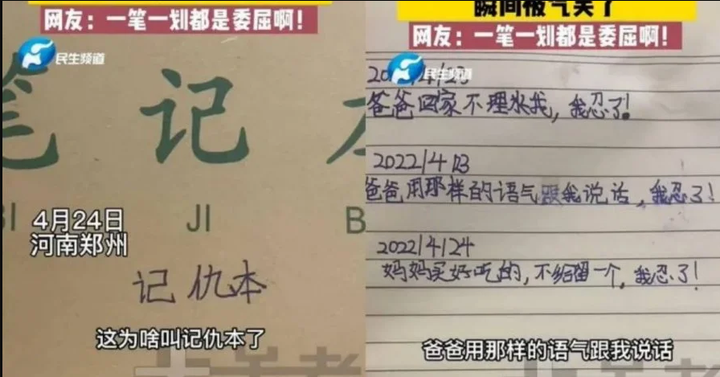 网友：一笔一划都是委屈啊！
民生频道
笔记本
BI JI B
4月24日
河南郑州
记仇本
这为啥叫记仇本了
瞬间被气笑了
网友：一笔一划都是委屈啊！
民生频道
爸爸回家不理我，我忍了！
2022/4/23
爸爸用那样的语气跟我说话，我忍了！
2022/4/24
妈妈买好吃的，不给留一个，我忍了！
爸爸用那样的语气跟我说话